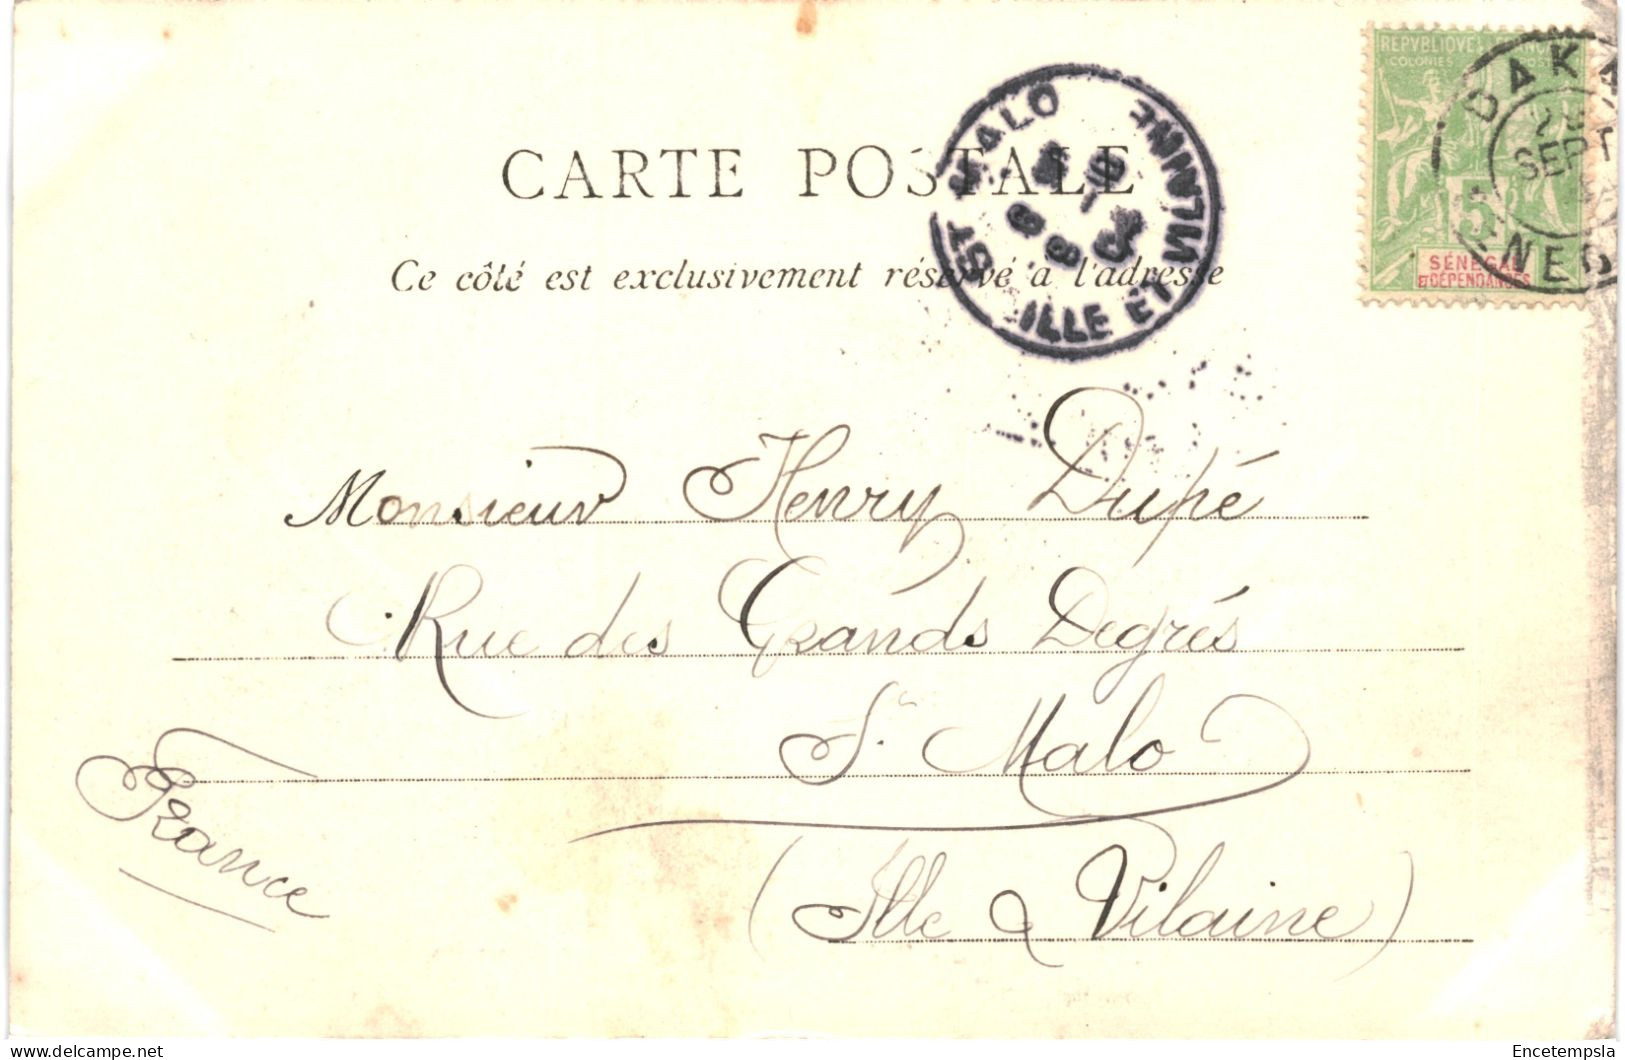 REPVBLIQVE FRANC
COLONIES POST
5
SÉNÉGAL
& DÉPENDANCES
DAKA
SEPT
NEG
ST MALO
ILLE ET VILAINE
CARTE POSTALE
Ce côté est exclusivement réservé à l'adresse
Monsieur Henry Dupé
Rue des Grands Degrés
St Malo
(Ille & Vilaine)
France
Encetempsla